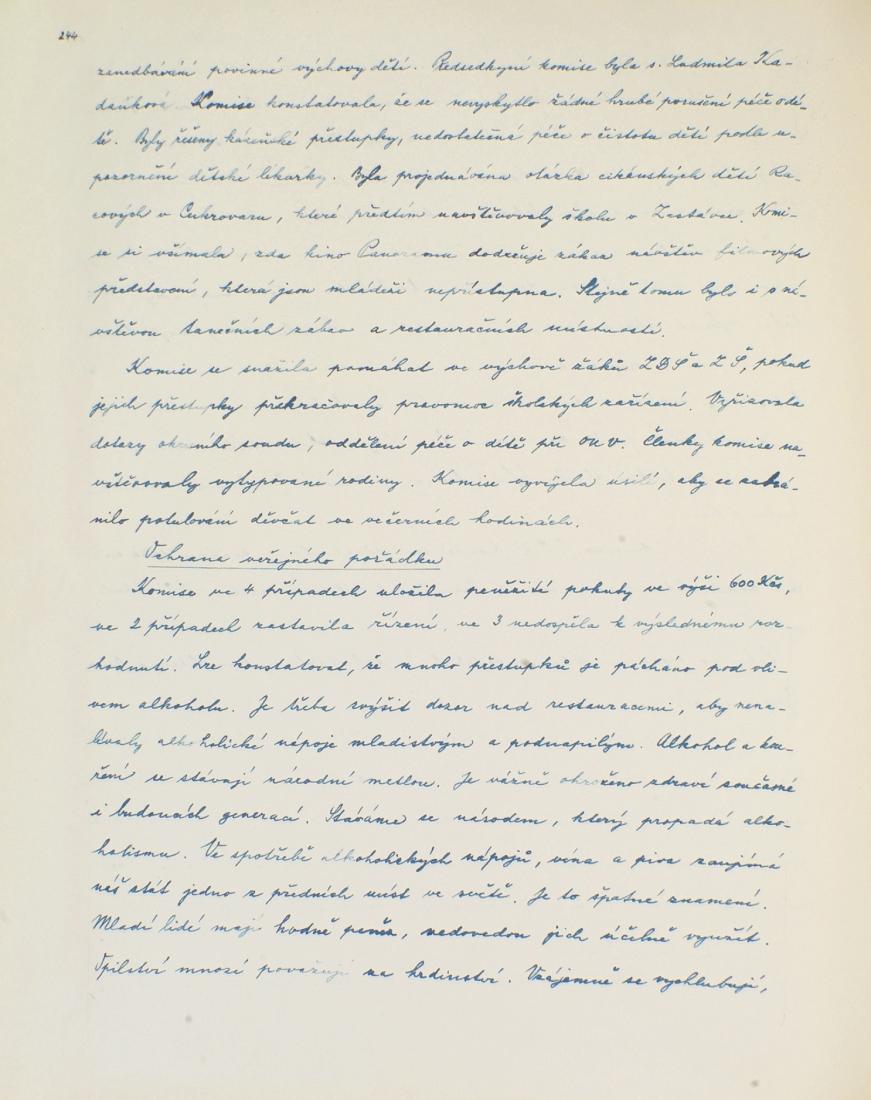 244
zanedbávání povinné výchovy dětí. Předsedkyní komise byla s. Ludmila Ka-
daňková. Komise konstatovala, že se nevyskytlo žádné hrubé porušení péče o dí-
tě. Byly řešeny kázeňské přestupky, nedostatečná péče o čistotu dětí podle u-
pozornění dětské lékařky. Byla projednávána otázka cikánských dětí Ra-
cových v Cukrovaru, které předtím navštěvovaly školu v Zastávce. Komi-
se si všímala, zda kino Panorama dodržuje zákaz návštěv filmových
představení, která jsou mládeži nepřístupna. Stejně tomu bylo i s ná-
vštěvou tanečních zábav a restauračních místností.
Komise se snažila pomáhat ve výchově žáků ZDŠ a ZŠ, pokud
jejich přestupky překračovaly pravomoc školských zařízení. Vyřizovala
dotazy okresního soudu, oddělení péče o dítě při ONV. Členky komise na-
vštěvovaly vytypované rodiny. Komise vyvíjela úsilí, aby se zabrá-
nilo potulování děvčat ve večerních hodinách.
Ochrana veřejného pořádku
Komise ve 4 případech uložila peněžité pokuty ve výši 600 Kčs,
ve 2 případech zastavila řízení, ve 3 nedospěla k výslednému roz-
hodnutí. Lze konstatovat, že mnoho přestupků je pácháno pod vli-
vem alkoholu. Je třeba zvýšit dozor nad restauracemi, aby nena-
lévaly alkoholické nápoje mladistvým a podnapilým. Alkohol a kou-
ření se stávají národní metlou. Je vážně ohroženo zdraví současné
i budoucích generací. Stáváme se národem, který propadá alko-
holismu. Ve spotřebě alkoholických nápojů, vína a piva zaujímá
náš stát jedno z předních míst ve světě. Je to špatné znamení.
Mladí lidé mají hodně peněz, nedovedou jich účelně využít.
Opilství mnozí považují za hrdinství. Vzájemně se vychlubují,